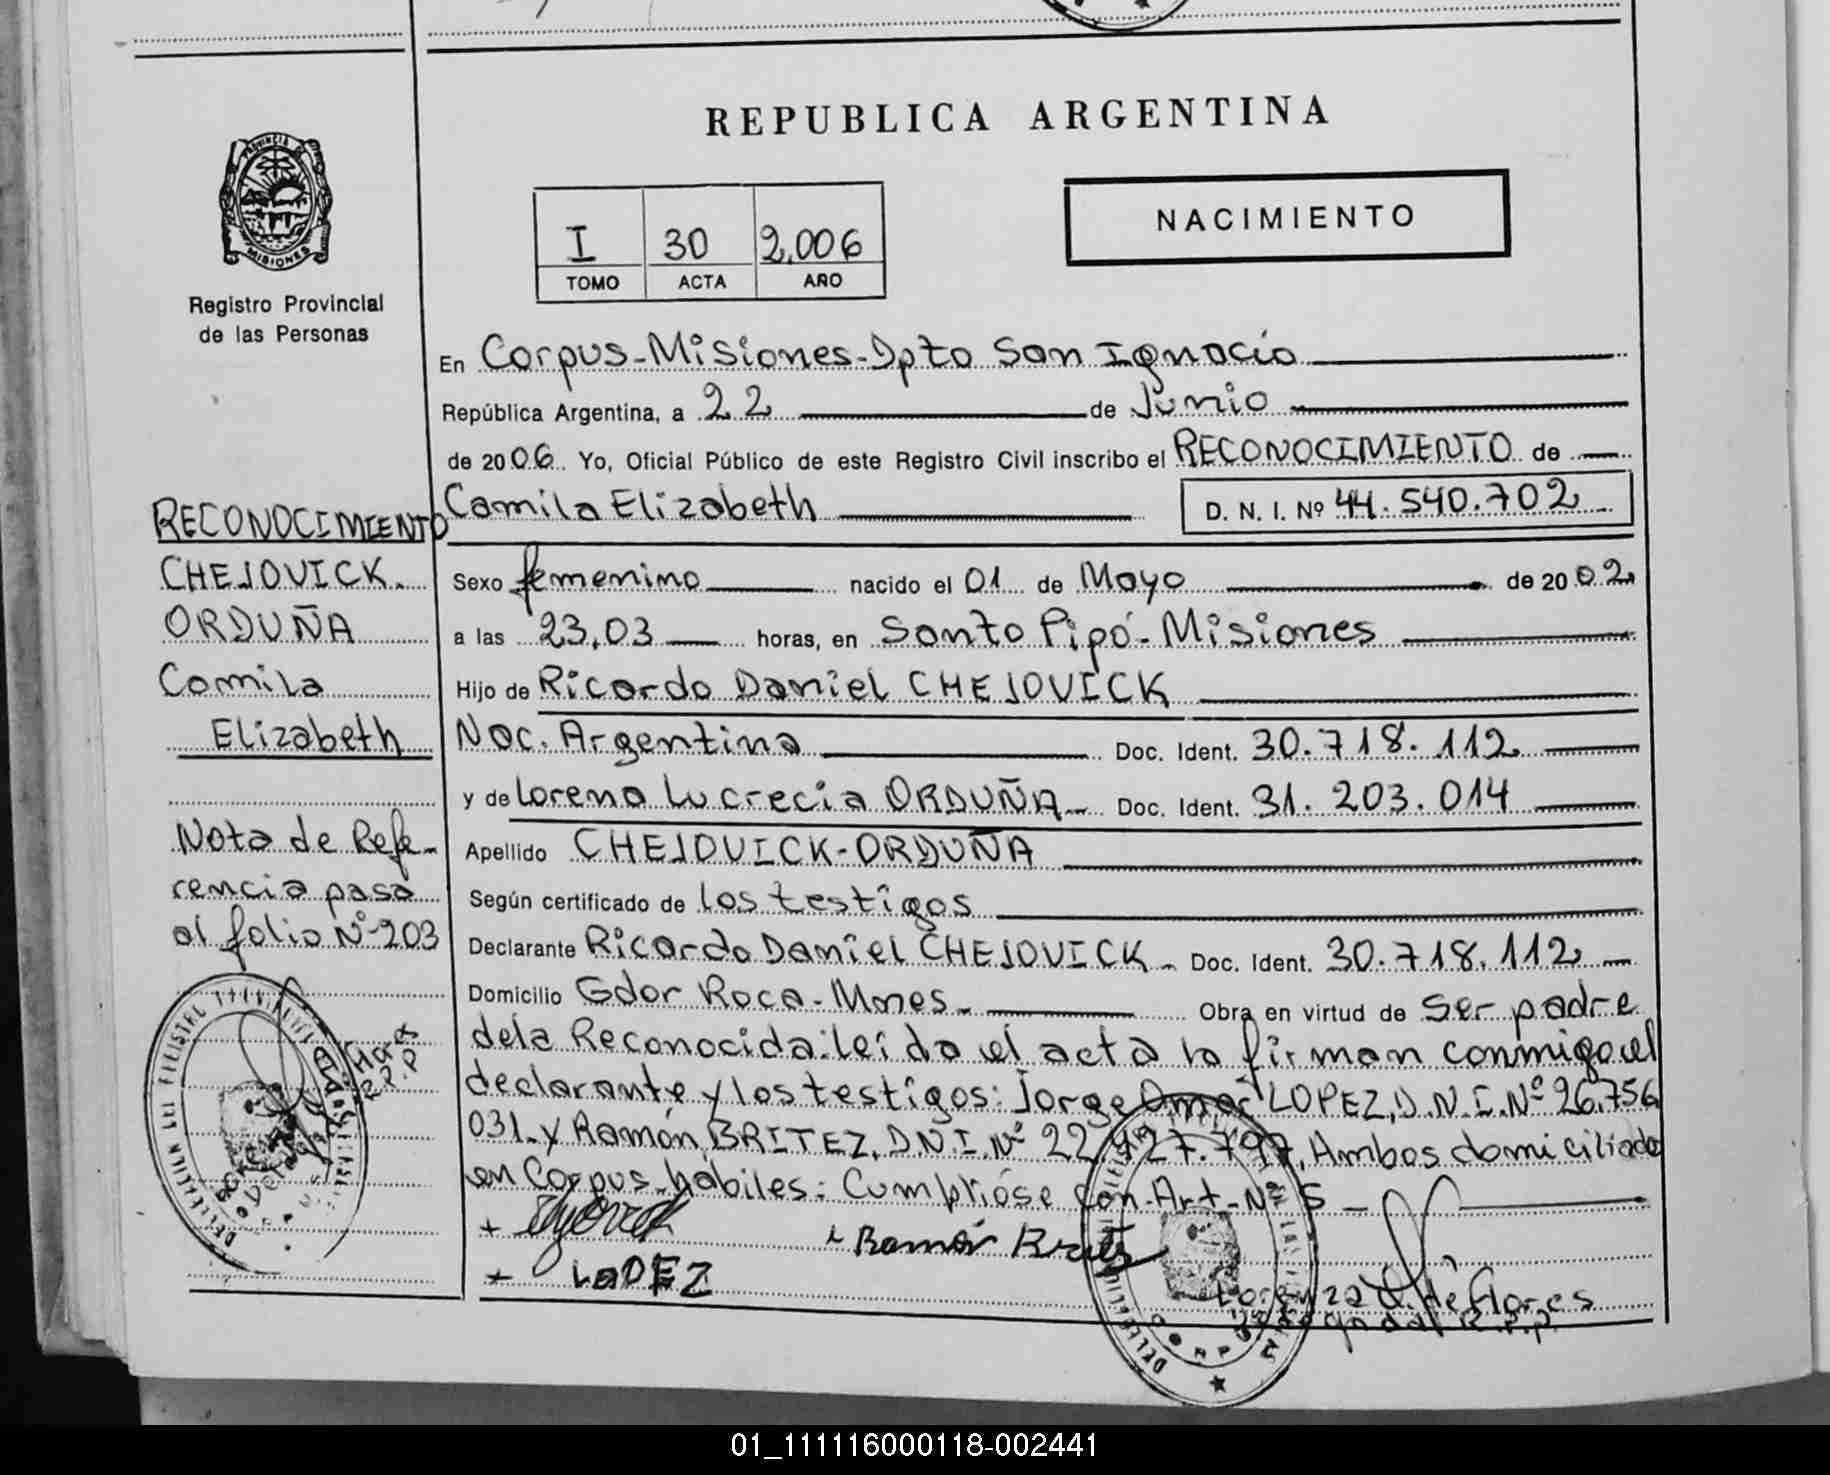 REPUBLICA ARGENTINA
PROVINCIA DE
MISIONES
Registro Provincial
de las Personas
I 30 2.006
TOMO ACTA AÑO
NACIMIENTO
En Corpus-Misiones-Dpto San Ignacio
República Argentina, a 22 de Junio
de 2006 Yo, Oficial Público de este Registro Civil inscribo el RECONOCIMIENTO de
Camila Elizabeth D. N. I. Nº 44.540.702
Sexo femenino nacido el 01 de Mayo de 2002
a las 23,03 horas, en Santo Pipó-Misiones
Hijo de Ricardo Daniel CHEJOVICK
Nac. Argentina Doc. Ident. 30.718.112
y de Lorena Lucrecia ORDUÑA- Doc. Ident. 31.203.014
Apellido CHEJOVICK-ORDUÑA
Según certificado de los testigos
Declarante Ricardo Daniel CHEJOVICK- Doc. Ident. 30.718.112
Domicilio Gdor Roca-Mnes- Obra en virtud de ser padre
dela Reconocida: leido el acta la firman conmigo el
declarante y los testigos: Jorge Omar LOPEZ, D.N.I. Nº 26.756
031- y Ramón BRITEZ, D.N.I. Nº 22.927.797, Ambos domiciliado
en Corpus-hábiles: Cumplióse con-Art-Nº 5
Ramón Britez
LOPEZ
Lorenza de Flores
R.P.P.
RECONOCIMIENTO
CHEJOVICK
ORDUÑA
Camila
Elizabeth
Nota de Refe-
rencia pasa
al folio Nº 203
01_111116000118-002441